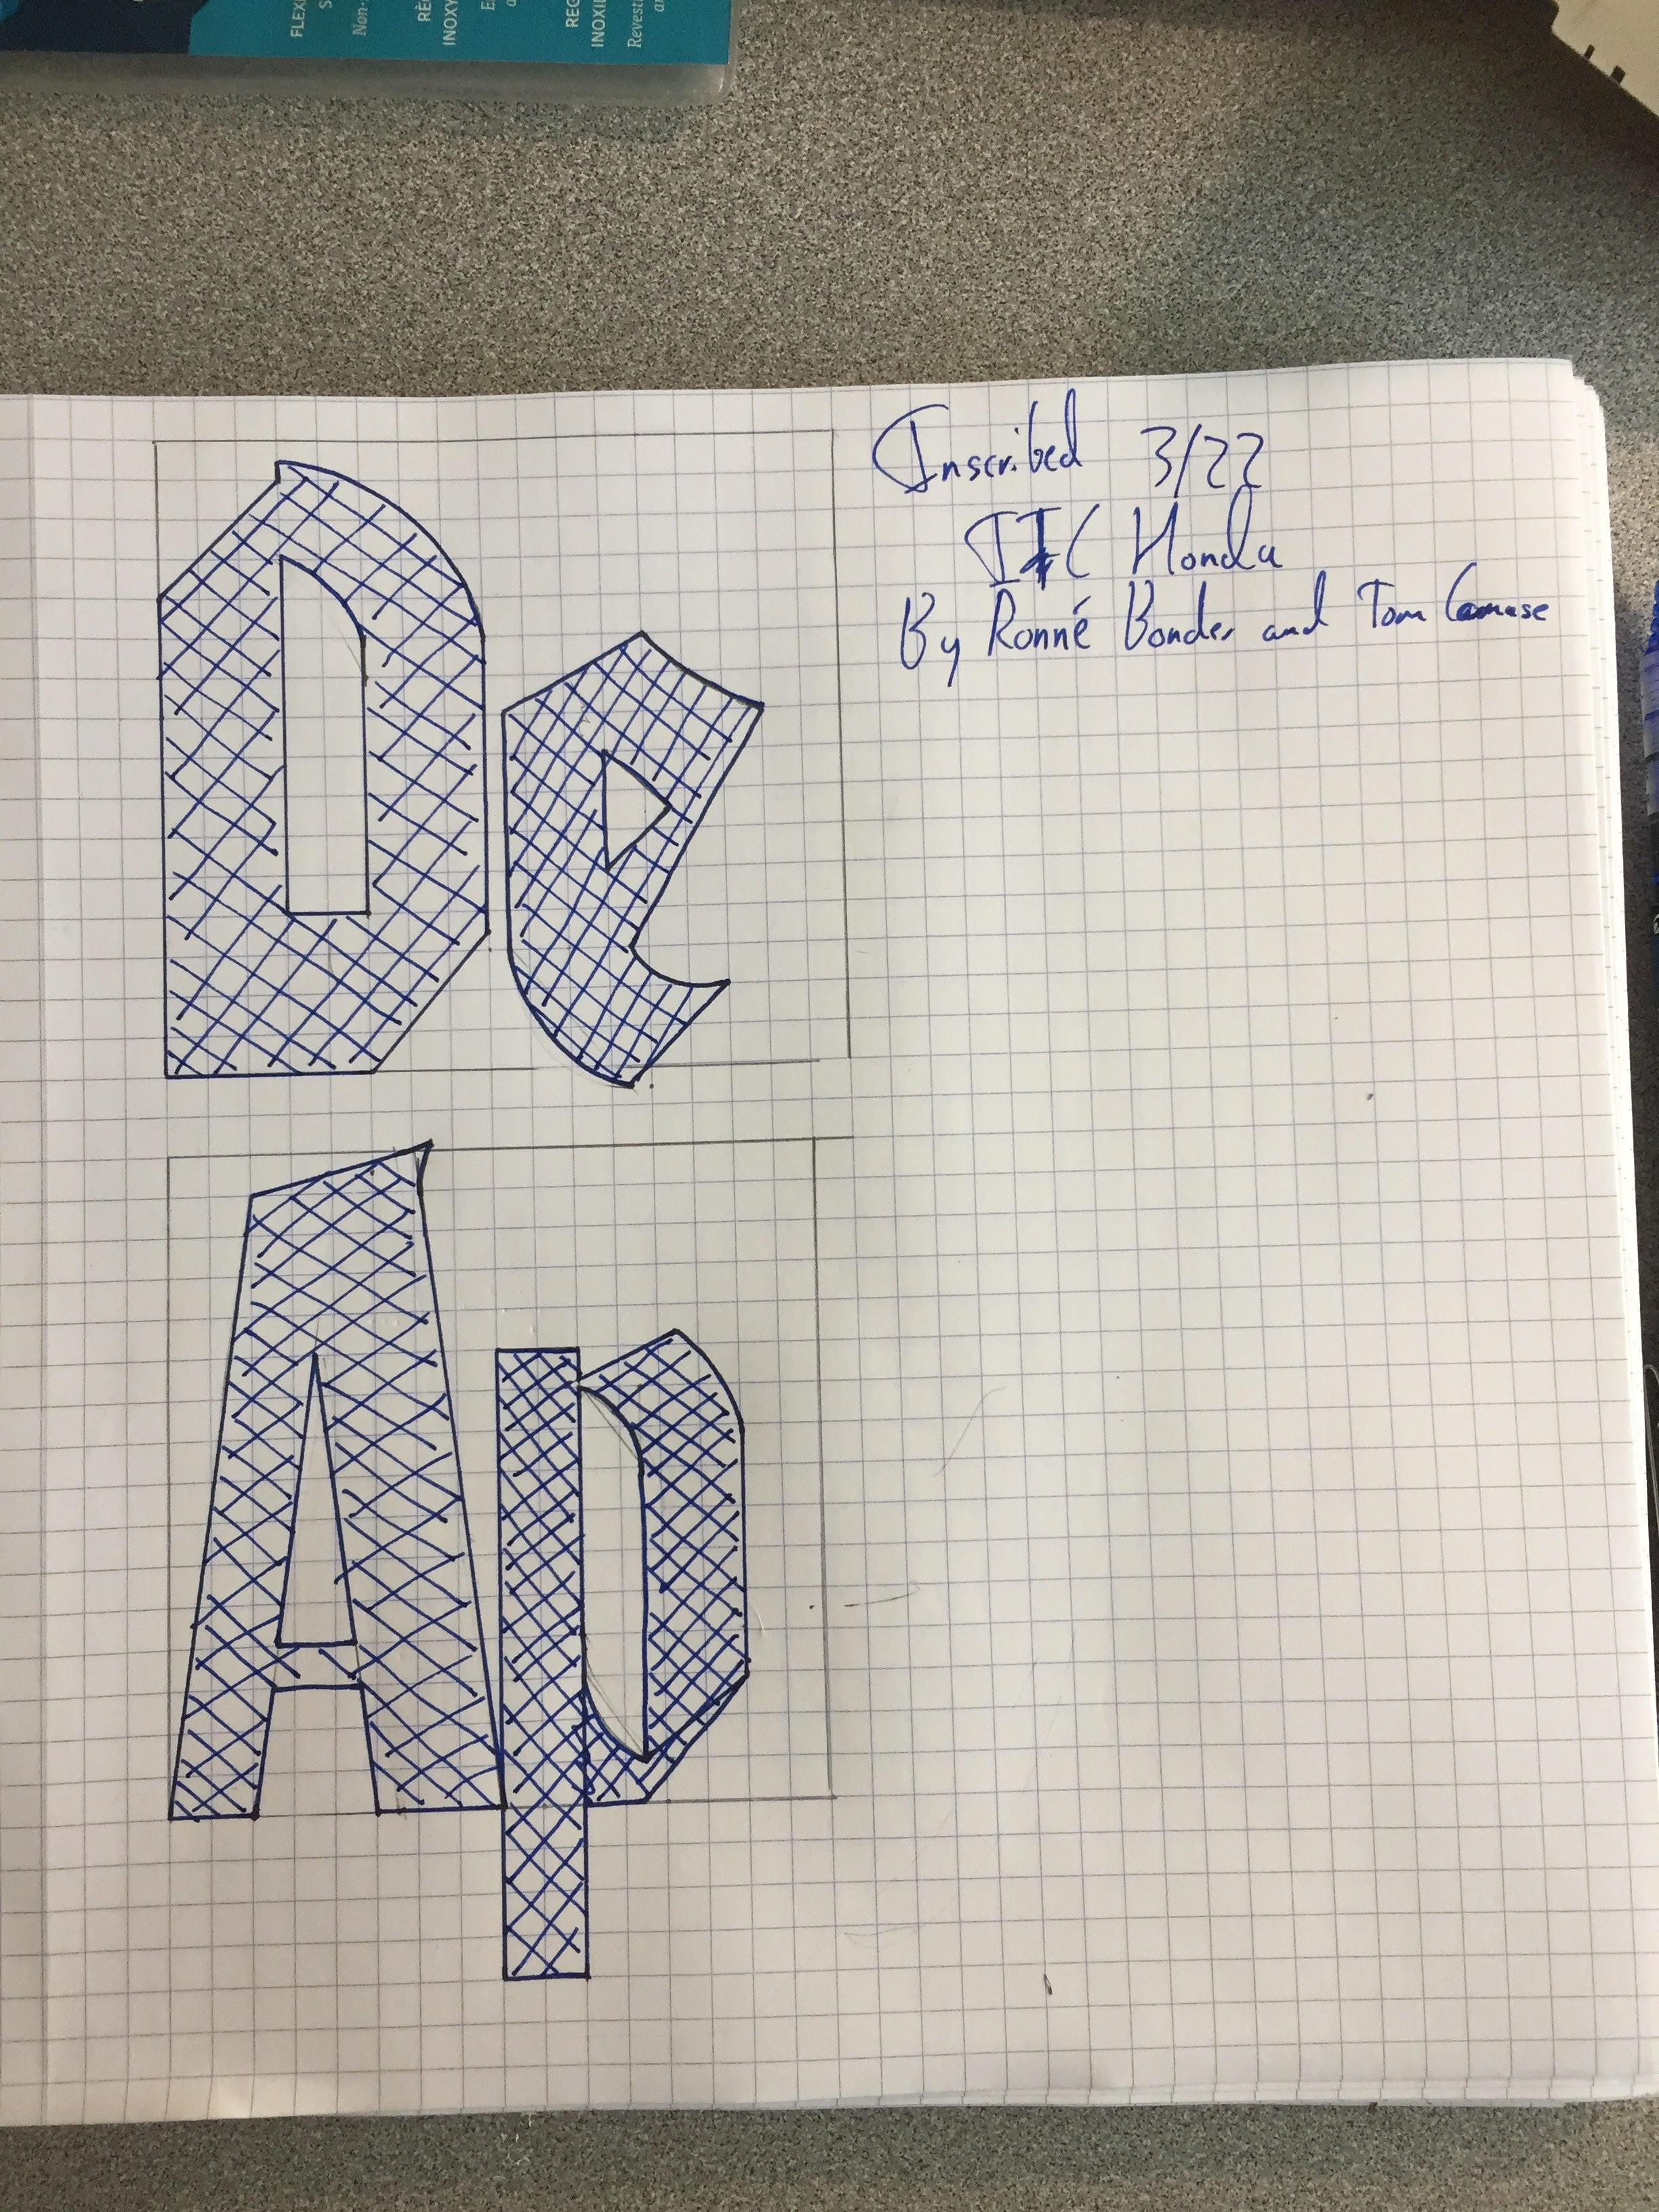 FLEXI
S
Non-
RÈ
INOXY
E
a
REG
INOXI
Revesti
an
De
Inscribed 3/22
ITC Honda
By Ronné Bonder and Tom Carnase
Ap